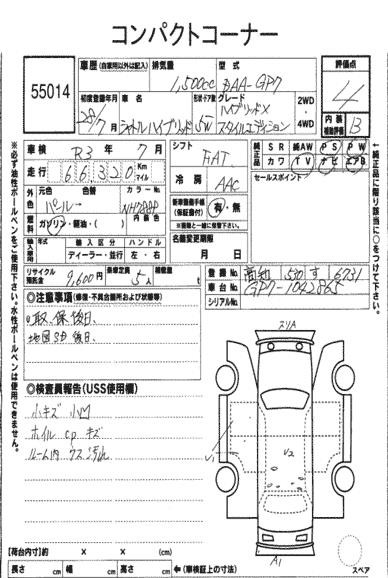 コンパクトコーナー
55014
車歴 (自家用以外は記入) 排気量 型式 評価点
1,500cc DAA-GP7 4
初度登録年月 車名 形状・ドア数 グレード
28/7月 シャトルハイブリッド 5W ハイブリッドX スタイルエディション 2WD・4WD
内装補助評価 B
車検 R3年 7月 シフト FAT
走行 66320 Km マイル
冷房 AAC
純正品 SR 純AW PS PW
カワ TV ナビ エアB
セールスポイント
外色 元色 パール 色替 カラーNo. NH788P
燃料 ガソリン・軽油・( ) 内装色
新車整備手帳 (保証書付) 有・無
輸入車用 輸入区分 ハンドル
ディーラー・並行 左・右
名義変更期限 月 日
リサイクル預託金 9,600円 乗車定員 5人 積載量 t
登録No. 高知 530 す 16731
車台No. GP7-1042865
シリアルNo.
◎注意事項 (修復・不具合箇所および状態等)
取、保後日、
地図SD後日、
◎検査員報告 (USS使用欄)
小キズ 小凹
ホイル cp キズ
ルーム内 クス 汚れ
スリA
U2
A1
スペア
【荷台内寸】 × × (cm)
長さ cm 幅 cm 高さ cm ←(車検証上の寸法)
※必ず油性ボールペンをご使用下さい。水性ボールペンは使用できません。
←純正品に限り該当に○をつけて下さい。